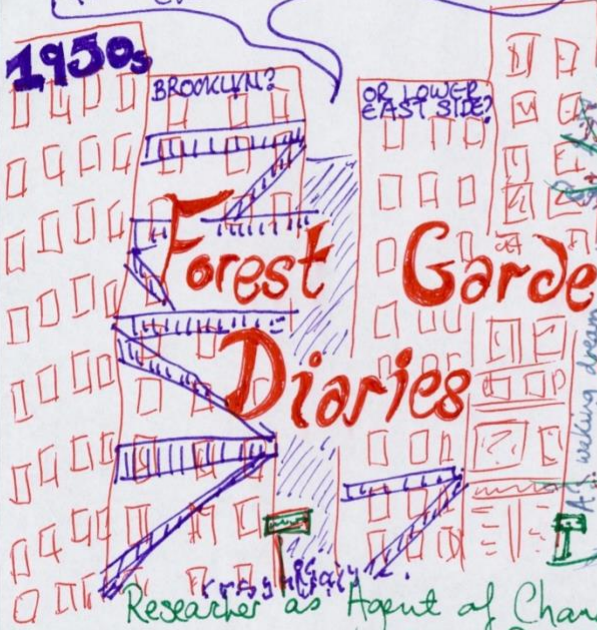 1950s
BROOKLYN?
OR LOWER
EAST SIDE?
Forest Garde
Diaries
Researcher as Agent of Chan